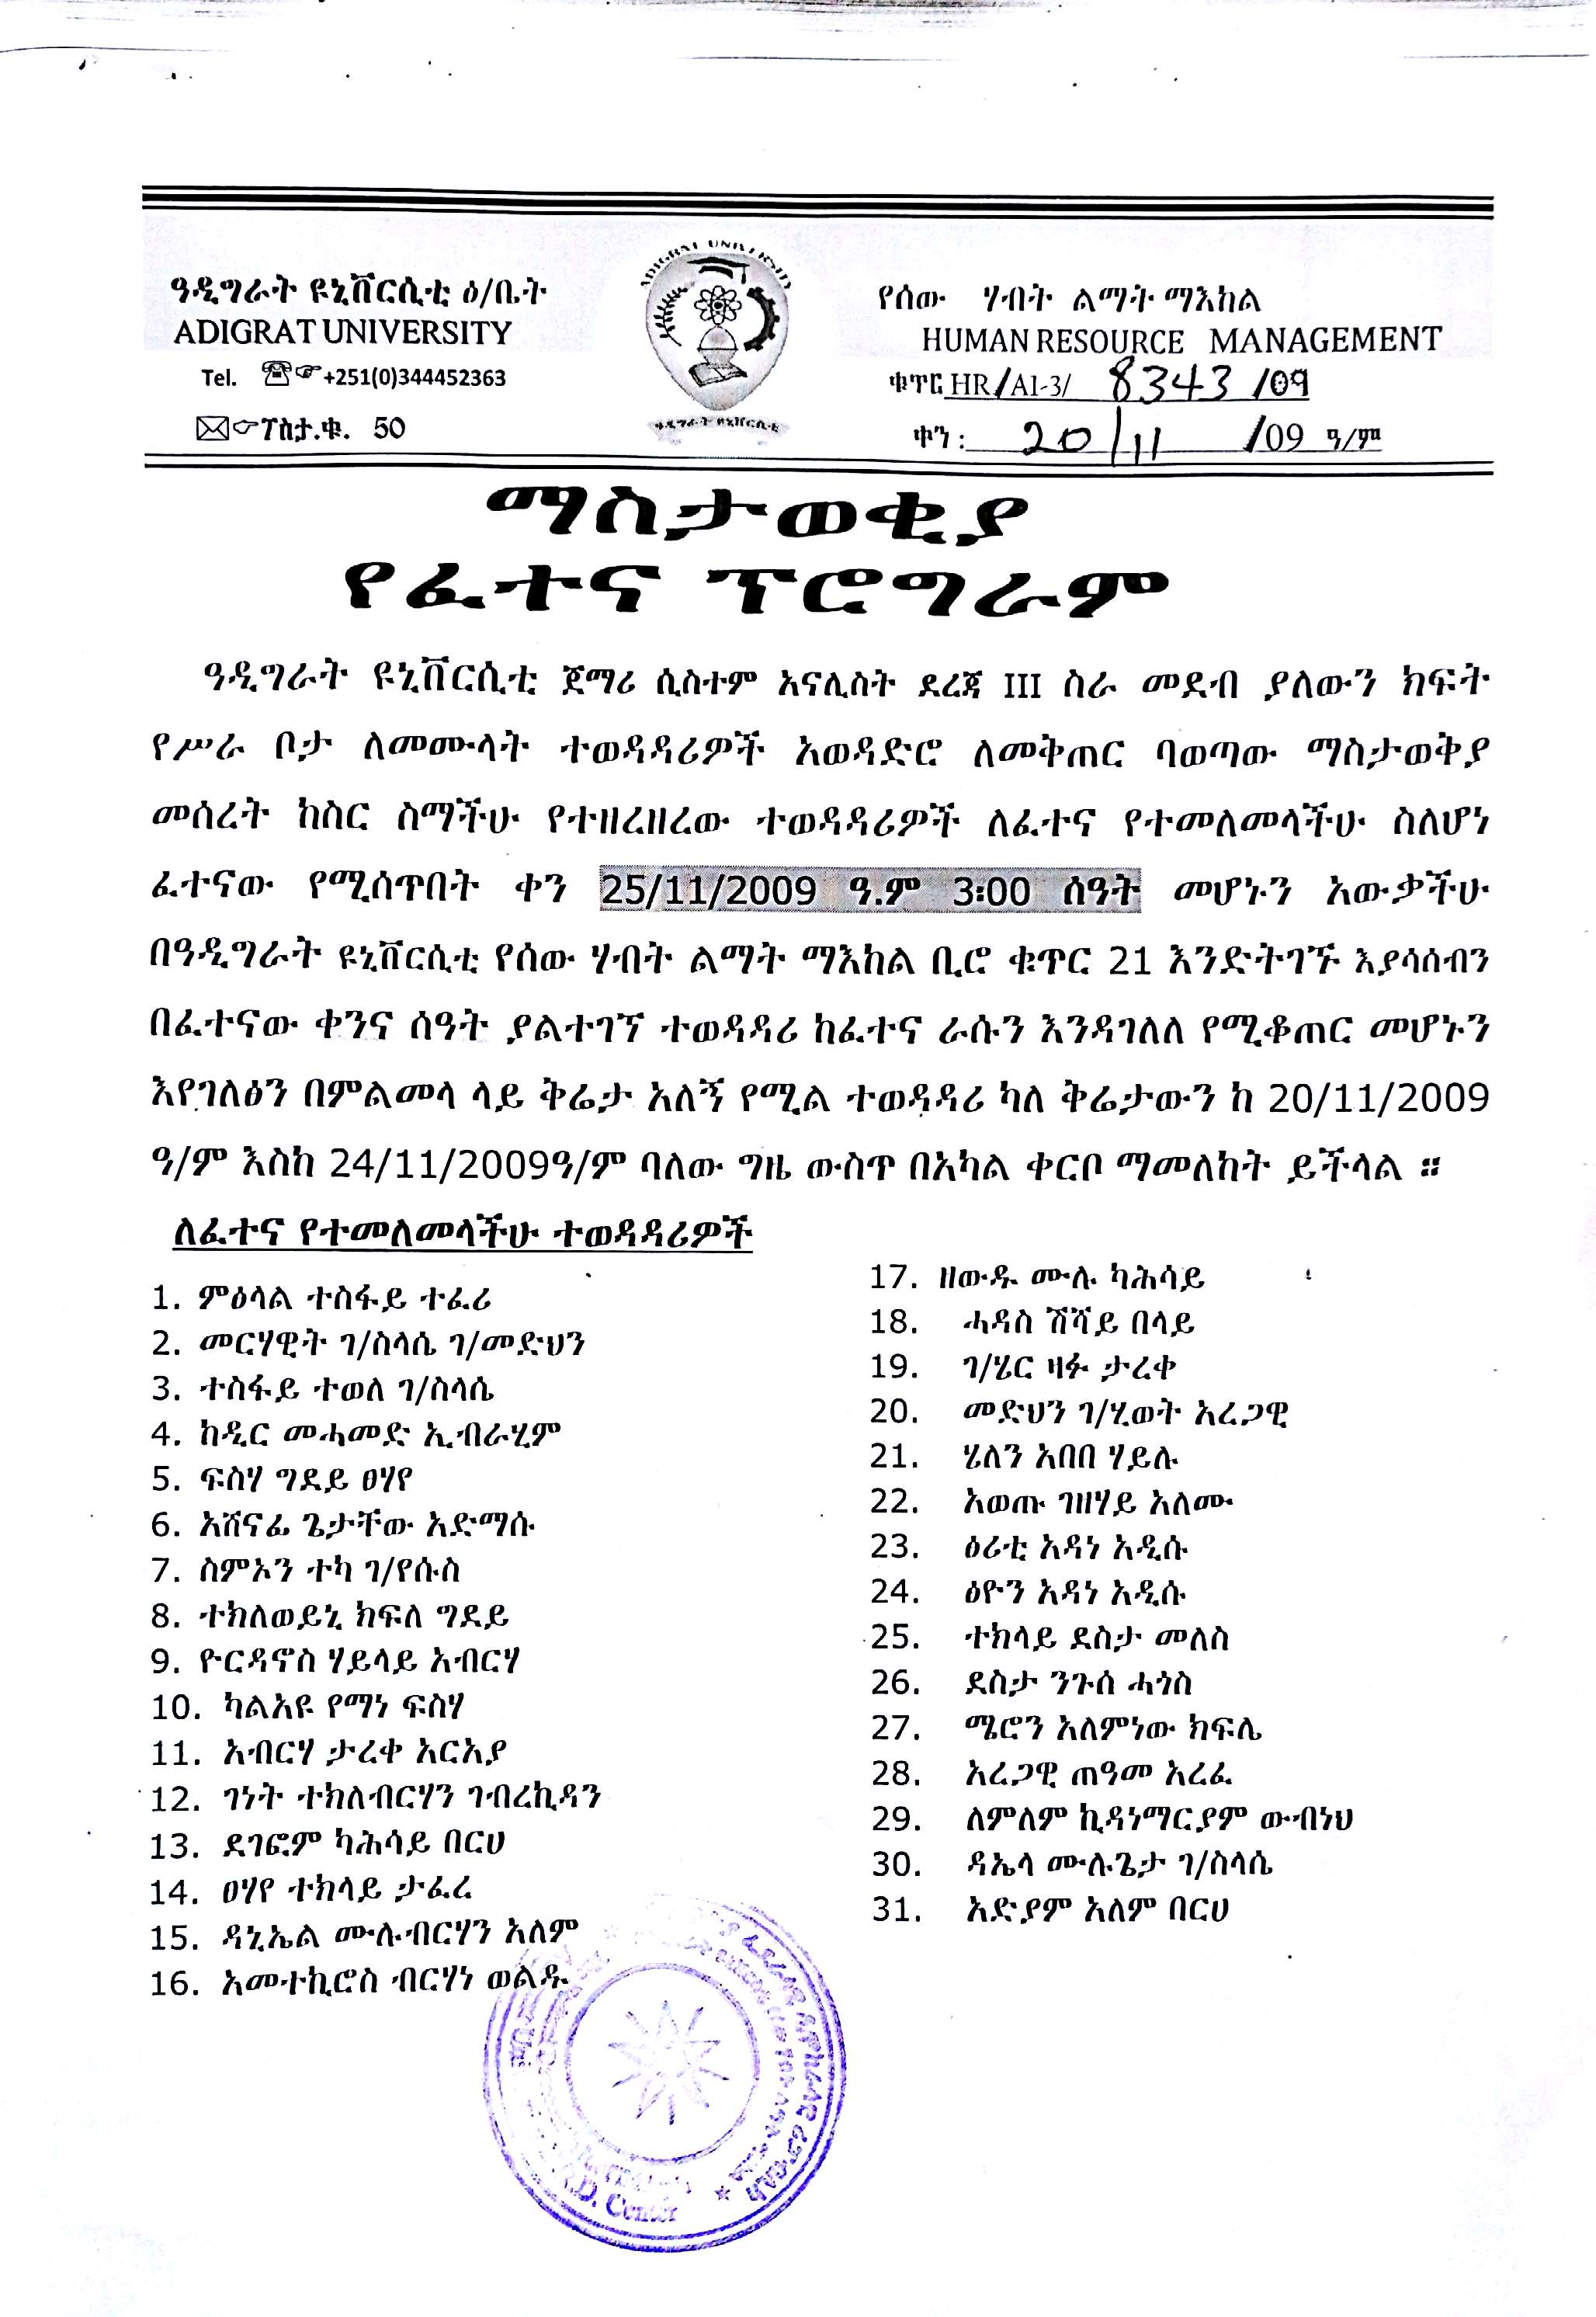 ዓዲግራት ዩኒቨርሲቲ ዕ/ቤት
ADIGRAT UNIVERSITY
Tel. +251(0)344452363
ፖስታ.ቁ. 50
ADIGRAT UNIVERSITY
ዓዲግራት ዩኒቨርሲቲ
የሰው ሃብት ልማት ማእከል
HUMAN RESOURCE MANAGEMENT
ቁጥር HR/A1-3/ 8343 /09
ቀን : 20/11 /09 ዓ/ም
ማስታወቂያ
የፈተና ፕሮግራም
ዓዲግራት ዩኒቨርሲቲ ጀማሪ ሲስተም አናሊስት ደረጃ III ስራ መደብ ያለውን ክፍት
የሥራ ቦታ ለመሙላት ተወዳዳሪዎች አወዳድሮ ለመቅጠር ባወጣው ማስታወቅያ
መሰረት ከስር ስማችሁ የተዘረዘረው ተወዳዳሪዎች ለፈተና የተመለመላችሁ ስለሆነ
ፈተናው የሚሰጥበት ቀን 25/11/2009 ዓ.ም 3፡00 ሰዓት መሆኑን አውቃችሁ
በዓዲግራት ዩኒቨርሲቲ የሰው ሃብት ልማት ማእከል ቢሮ ቁጥር 21 እንድትገኙ እያሳሰብን
በፈተናው ቀንና ሰዓት ያልተገኘ ተወዳዳሪ ከፈተና ራሱን እንዳገለለ የሚቆጠር መሆኑን
እየገለፅን በምልመላ ላይ ቅሬታ አለኝ የሚል ተወዳዳሪ ካለ ቅሬታውን ከ 20/11/2009
ዓ/ም እስከ 24/11/2009ዓ/ም ባለው ግዜ ውስጥ በአካል ቀርቦ ማመለከት ይችላል ።
ለፈተና የተመለመላችሁ ተወዳዳሪዎች
1. ምዕላል ተስፋይ ተፈሪ
2. መርሃዊት ገ/ስላሴ ገ/መድህን
3. ተስፋይ ተወለ ገ/ስላሴ
4. ከዲር መሓመድ ኢብራሂም
5. ፍስሃ ግደይ ፀሃየ
6. አሸናፊ ጌታቸው አድማሱ
7. ስምኦን ተካ ገ/የሱስ
8. ተክለወይኒ ክፍለ ግደይ
9. ዮርዳኖስ ሃይላይ አብርሃ
10. ካልአዩ የማነ ፍስሃ
11. አብርሃ ታረቀ አርአያ
12. ገነት ተክለብርሃን ገብረኪዳን
13. ደገፎም ካሕሳይ በርሀ
14. ፀሃየ ተክላይ ታፈረ
15. ዳኒኤል ሙሉብርሃን አለም
16. አመተኪሮስ ብርሃነ ወልዱ
17. ዘውዱ ሙሉ ካሕሳይ
18. ሓዳስ ሽሻይ በላይ
19. ገ/ሄር ዛፉ ታረቀ
20. መድህን ገ/ሂወት አረጋዊ
21. ሄለን አበበ ሃይሉ
22. አወጡ ገዘሃይ አለሙ
23. ዕሪቲ አዳነ አዲሱ
24. ዕዮን አዳነ አዲሱ
25. ተክላይ ደስታ መለስ
26. ደስታ ንጉሰ ሓጎስ
27. ሜሮን አለምነው ክፍሌ
28. አረጋዊ ጠዓመ አረፈ
29. ለምለም ኪዳነማርያም ውብነህ
30. ዳኤላ ሙሉጌታ ገ/ስላሴ
31. አድያም አለም በርሀ
Center